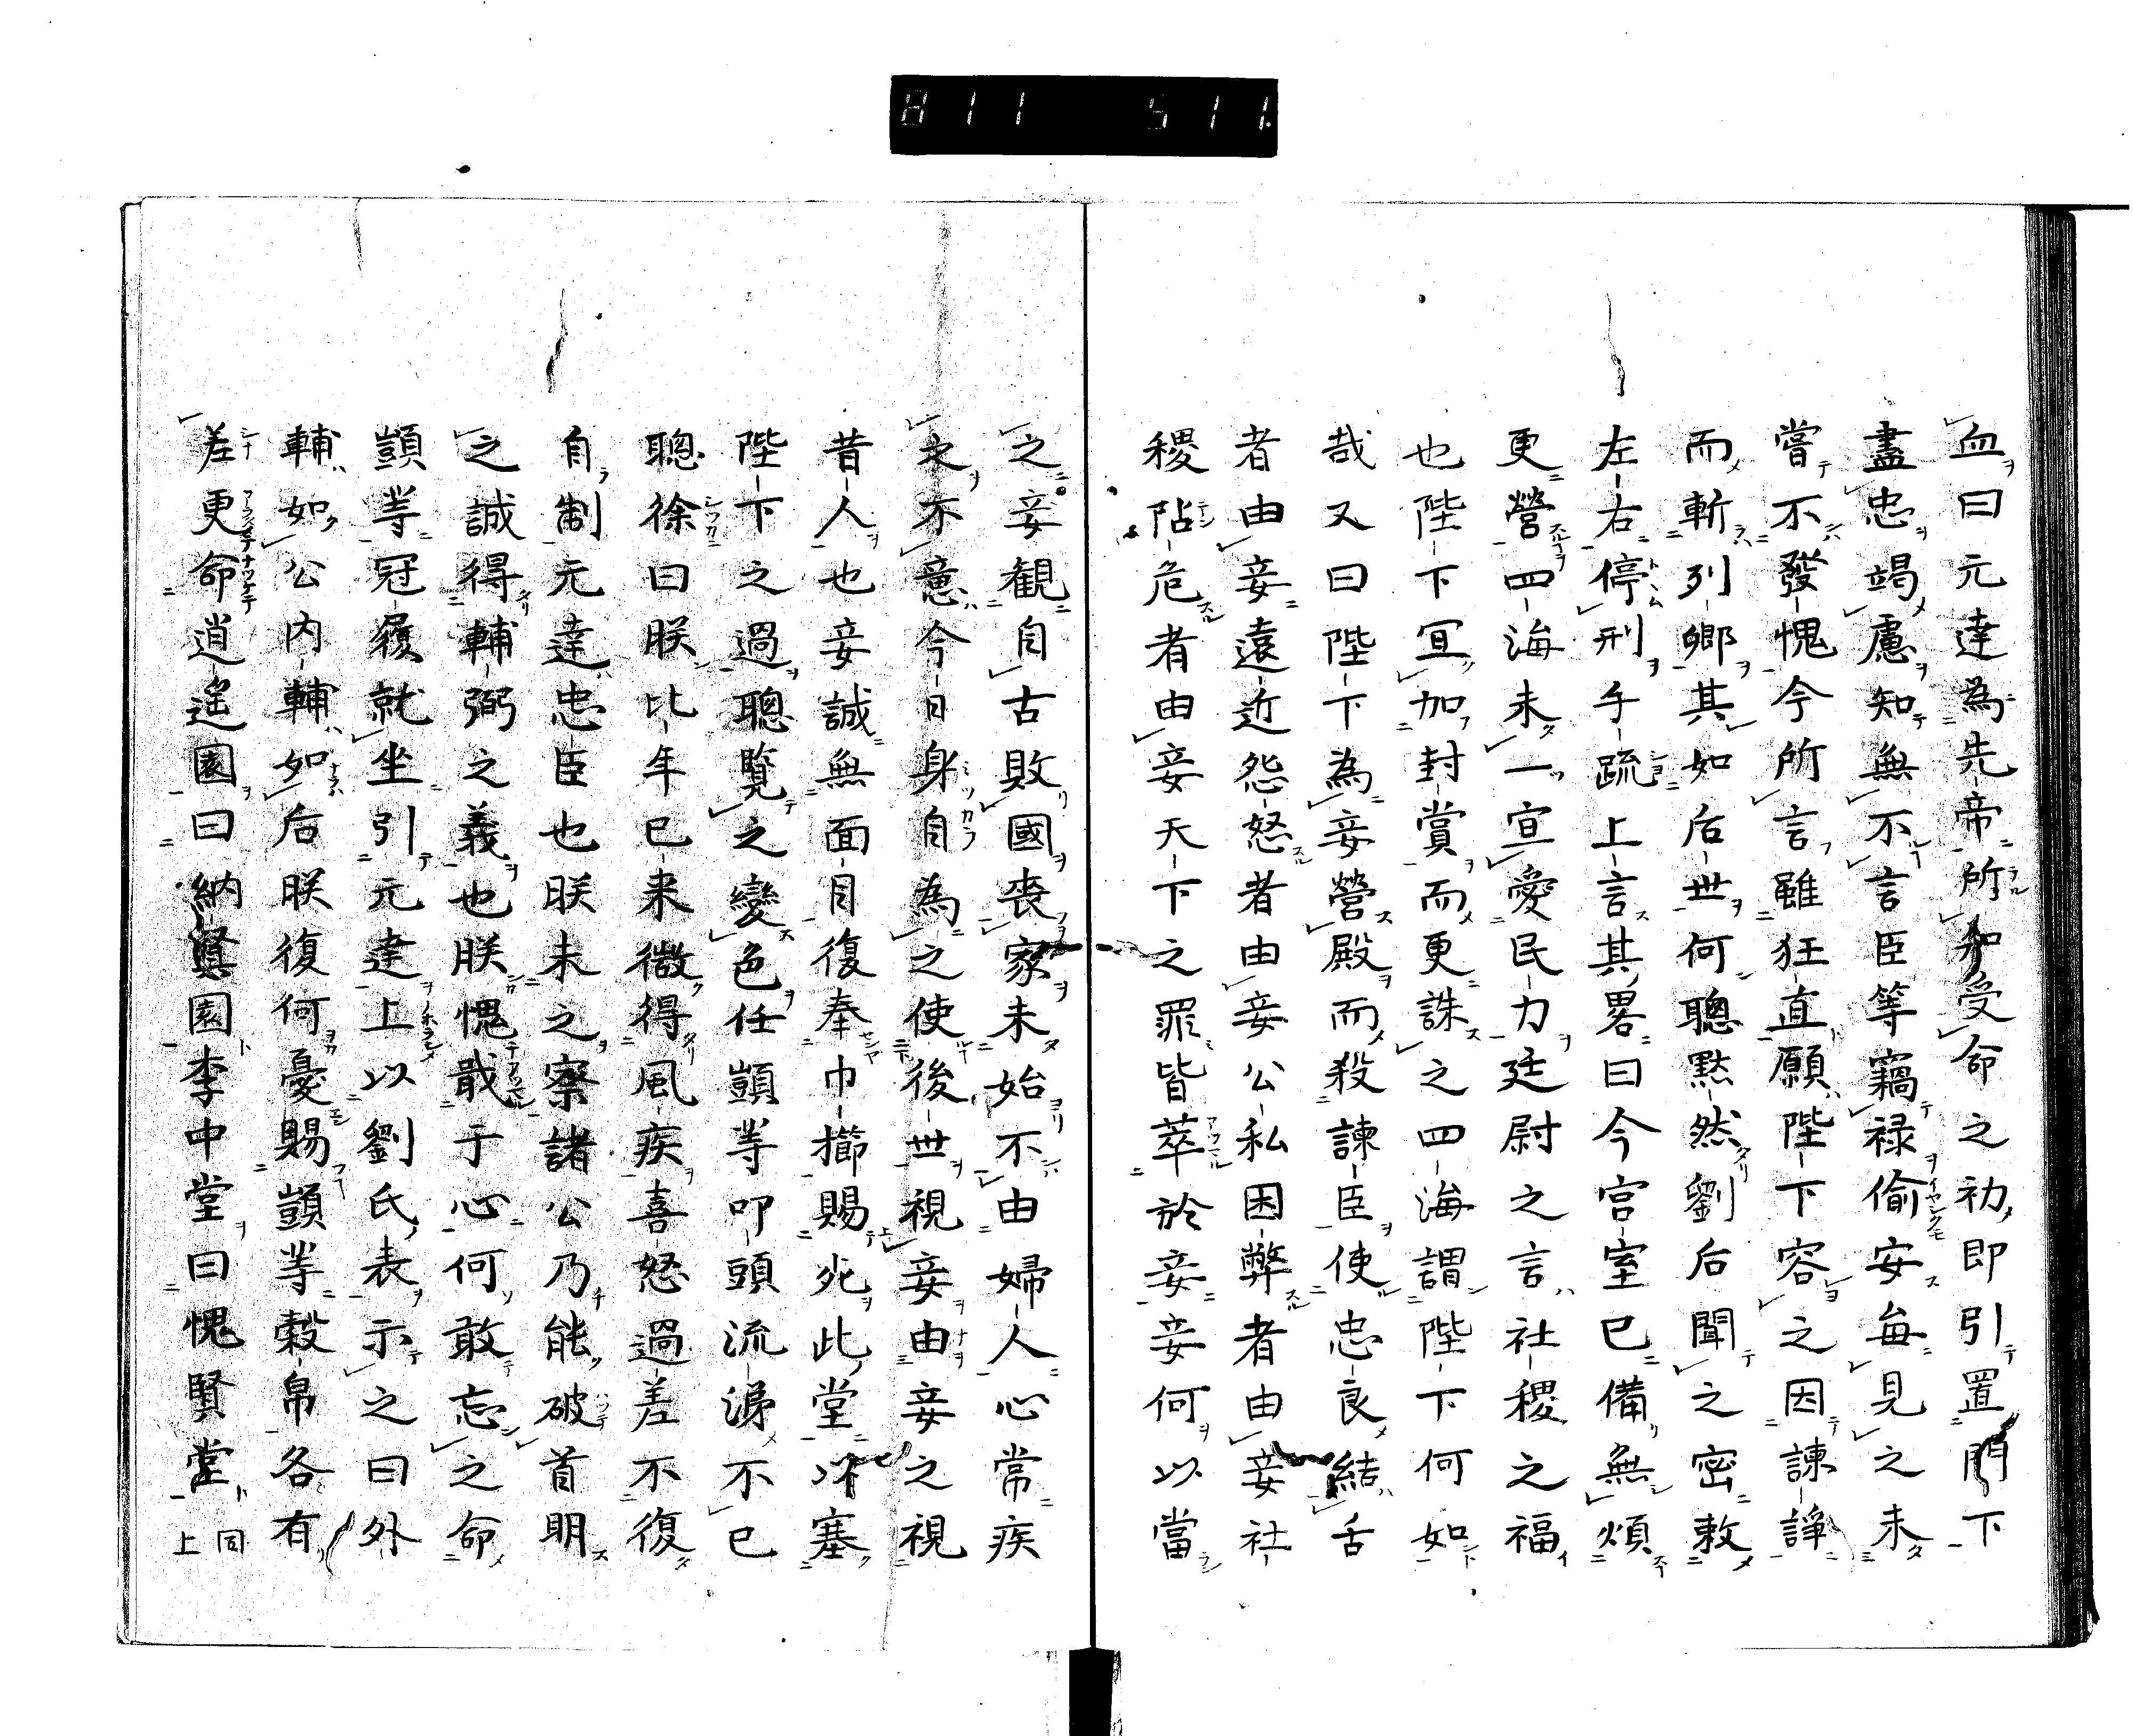 811 511.
血曰元達為先帝所知受命之初即引置門下
盡忠竭慮知無不言臣等竊祿偷安每見之未
嘗不發愧今所言雖狂直願陛下容之因諫諍
而斬列卿其如后世何聰黙然劉后聞之密敕
左右停刑手疏上言其畧曰今宮室已備無煩
更營四海未一宣愛民力廷尉之言社稷之福
也陛下宣加封賞而更誅之四海謂陛下何如
哉又曰陛下為妾營殿而殺諫臣使忠良結舌
者由妾遠近怨怒者由妾公私困弊者由妾社
稷阽危者由妾天下之罪皆萃於妾妾何以當
之妾観自古敗國喪家未始不由婦人心常疾
之不意今日身自為之使後世視妾由妾之視
昔人也妾誠無面目復奉巾櫛賜死此堂以塞
陛下之過聰覽之變色任顗等叩頭流涕不已
聰徐曰朕比年已来微得風疾喜怒過差不復
自制元達忠臣也朕未之察諸公乃能破首明
之誠得輔弼之義也朕愧戢于心何敢忘之命
顗等冠履就坐引元達上以劉氏表示之曰外
輔如公内輔如后朕復何憂賜顗等穀帛各有
差更命逍遥園曰納賢園李中堂曰愧賢堂 同上